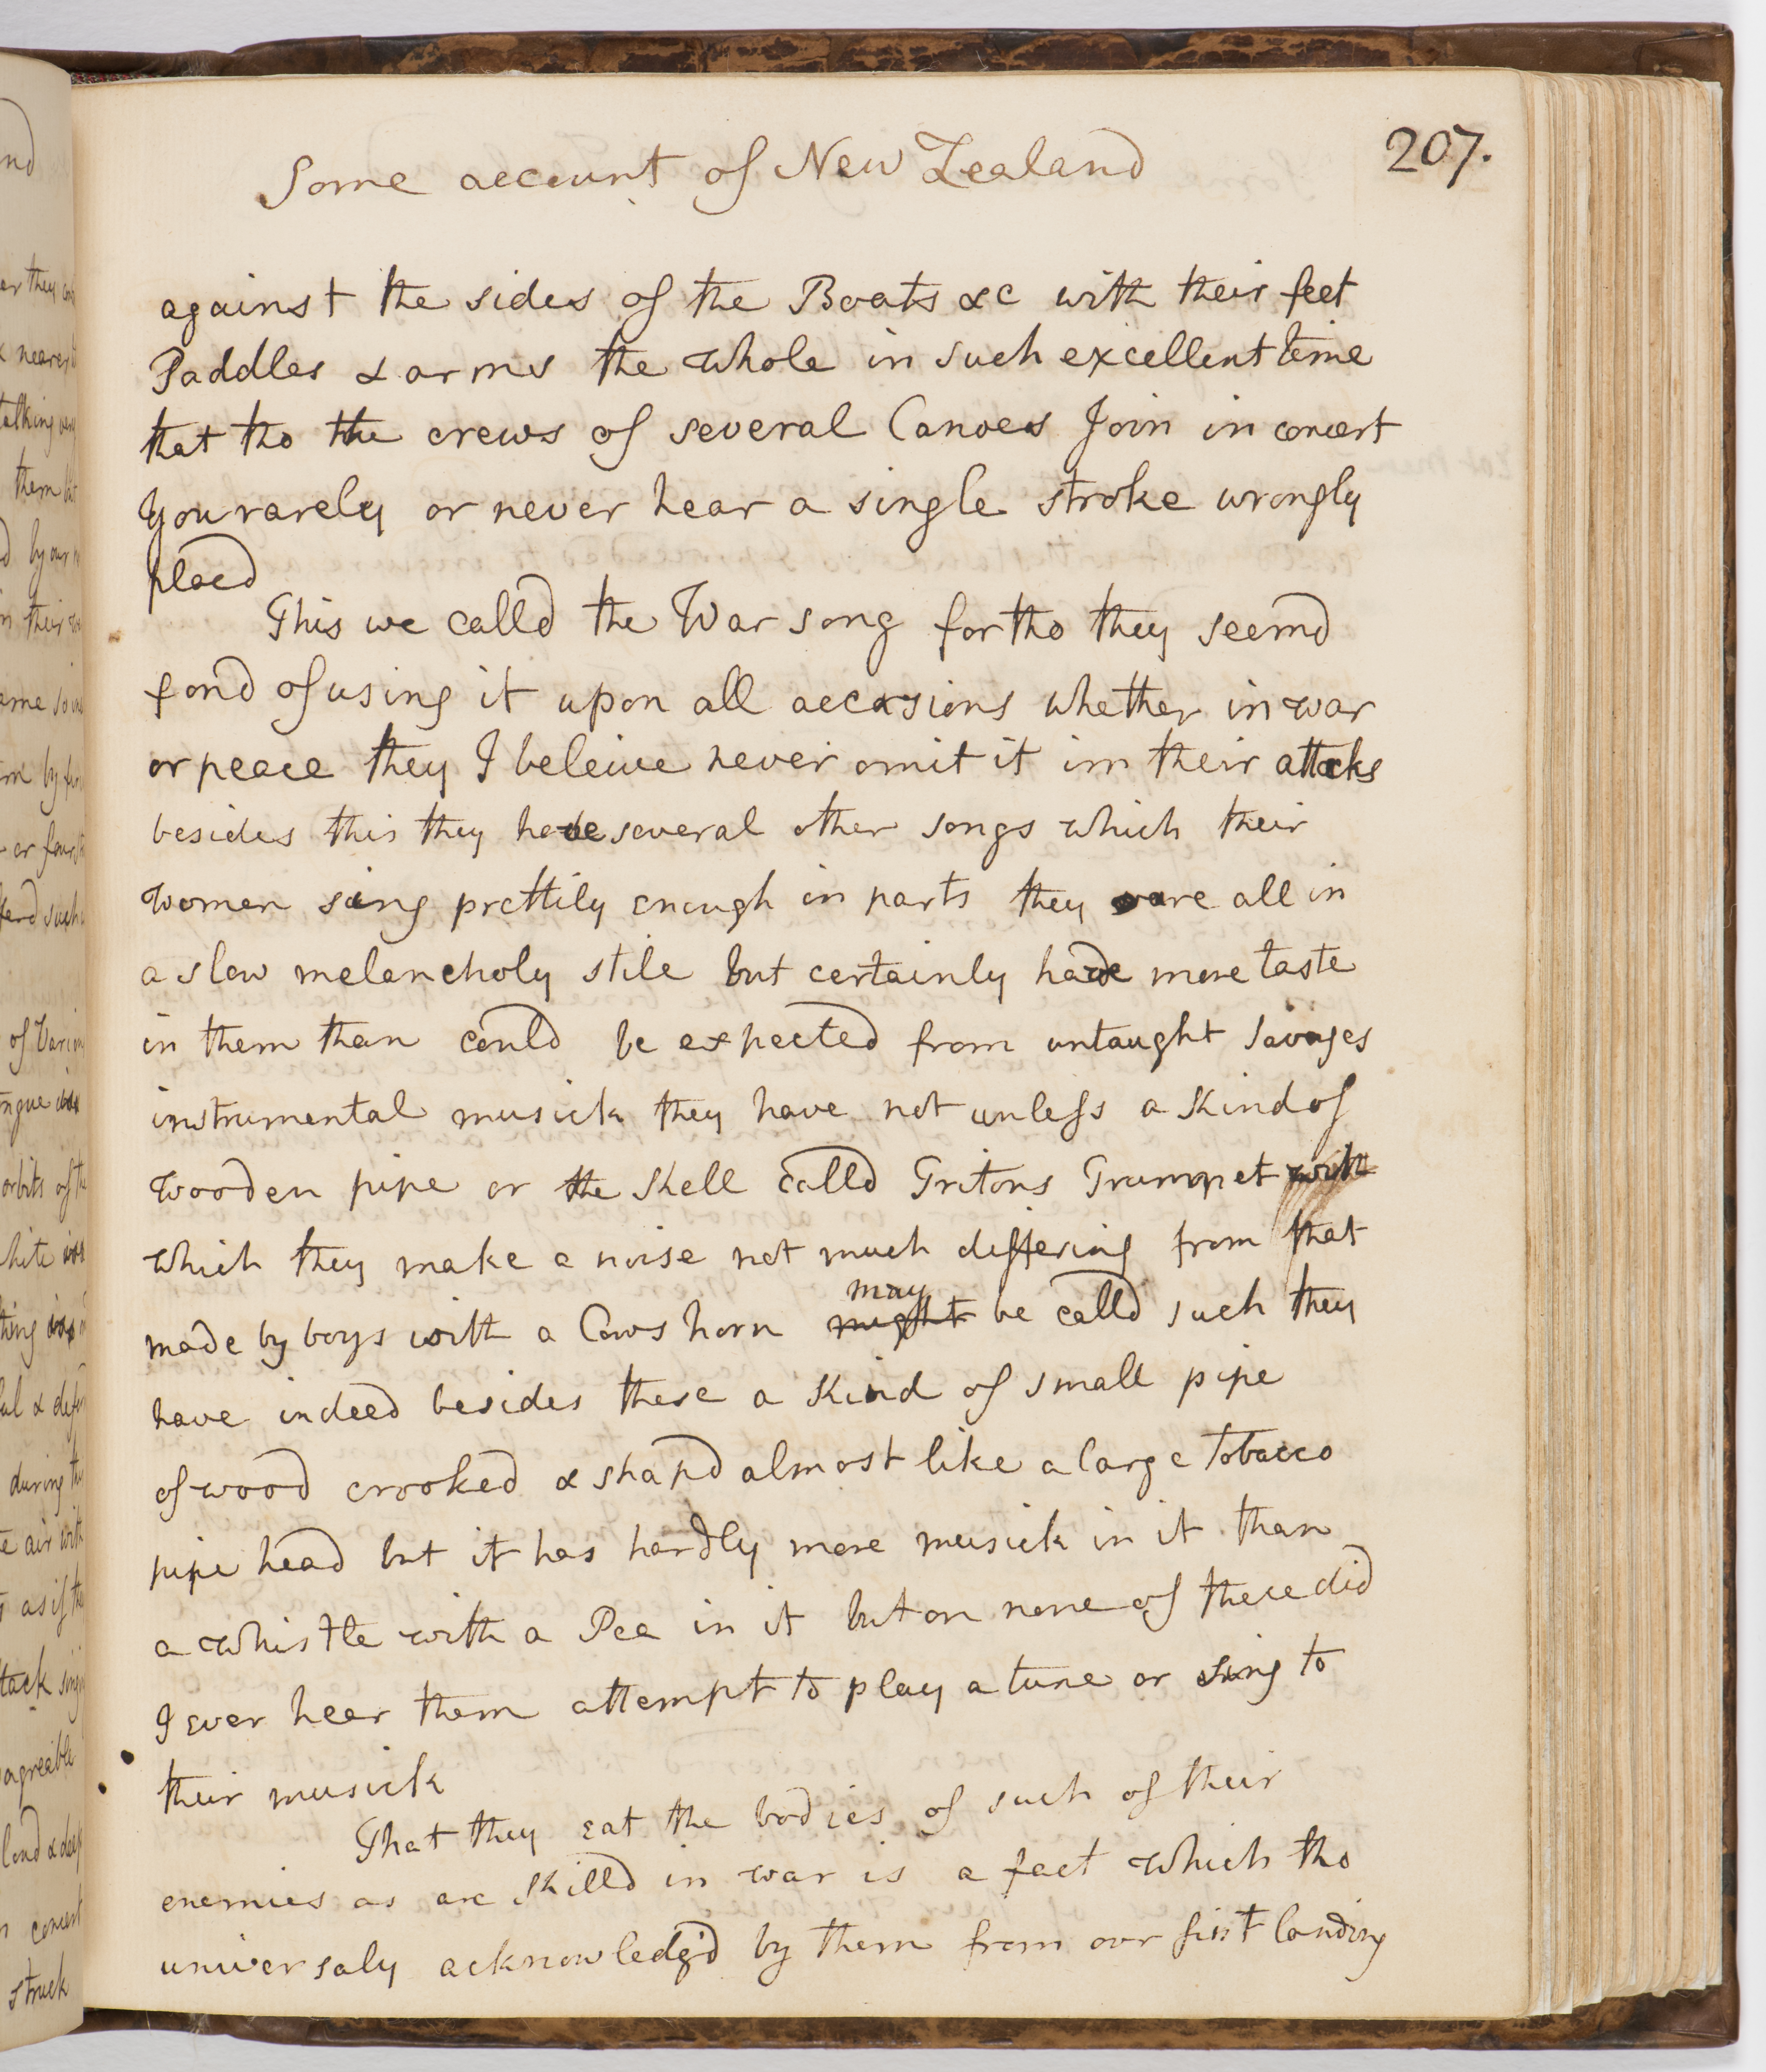 Some account of New Zealand
207.
against the sides of the Boats &c with their feet
Paddles & arms the whole in such excellent time
that tho the crews of several Canoes Join in concert
you rarely or never hear a single stroke wrongly
placd
This we calld the War song for tho they seemd
fond of using it upon all occasions whether in war
or peace they I beleive never omit it in their attacks
besides this they have several other songs which their
women sing prettily enough in parts they are all in
a slow melancholy stile but certainly have more taste
in them than could be expected from untaught savages
instrumental musick they have not unless a kind of
wooden pipe or the shell calld Tritons Trumpet with
which they make a noise not much differing from that
may
made by boys with a Cows horn might be calld such they
have indeed besides these a kind of small pipe
of wood crooked & shapd almost like a large tobacco
pipe head but it has hardly more musick in it than
a whistle with a Pea in it but on none of these did
I ever hear them attempt to play a tune or sing to
their musick
That they eat the bodies of such of their
enemies as are killd in war is a fact which tho
universaly acknowledg'd by them from our first landing
nd
er they
& nearer
talking
them
by our
in their
by
or four
such
of
orbits of the
during the
air with
as if the
tack
agreable
loud & deep
concert
struck